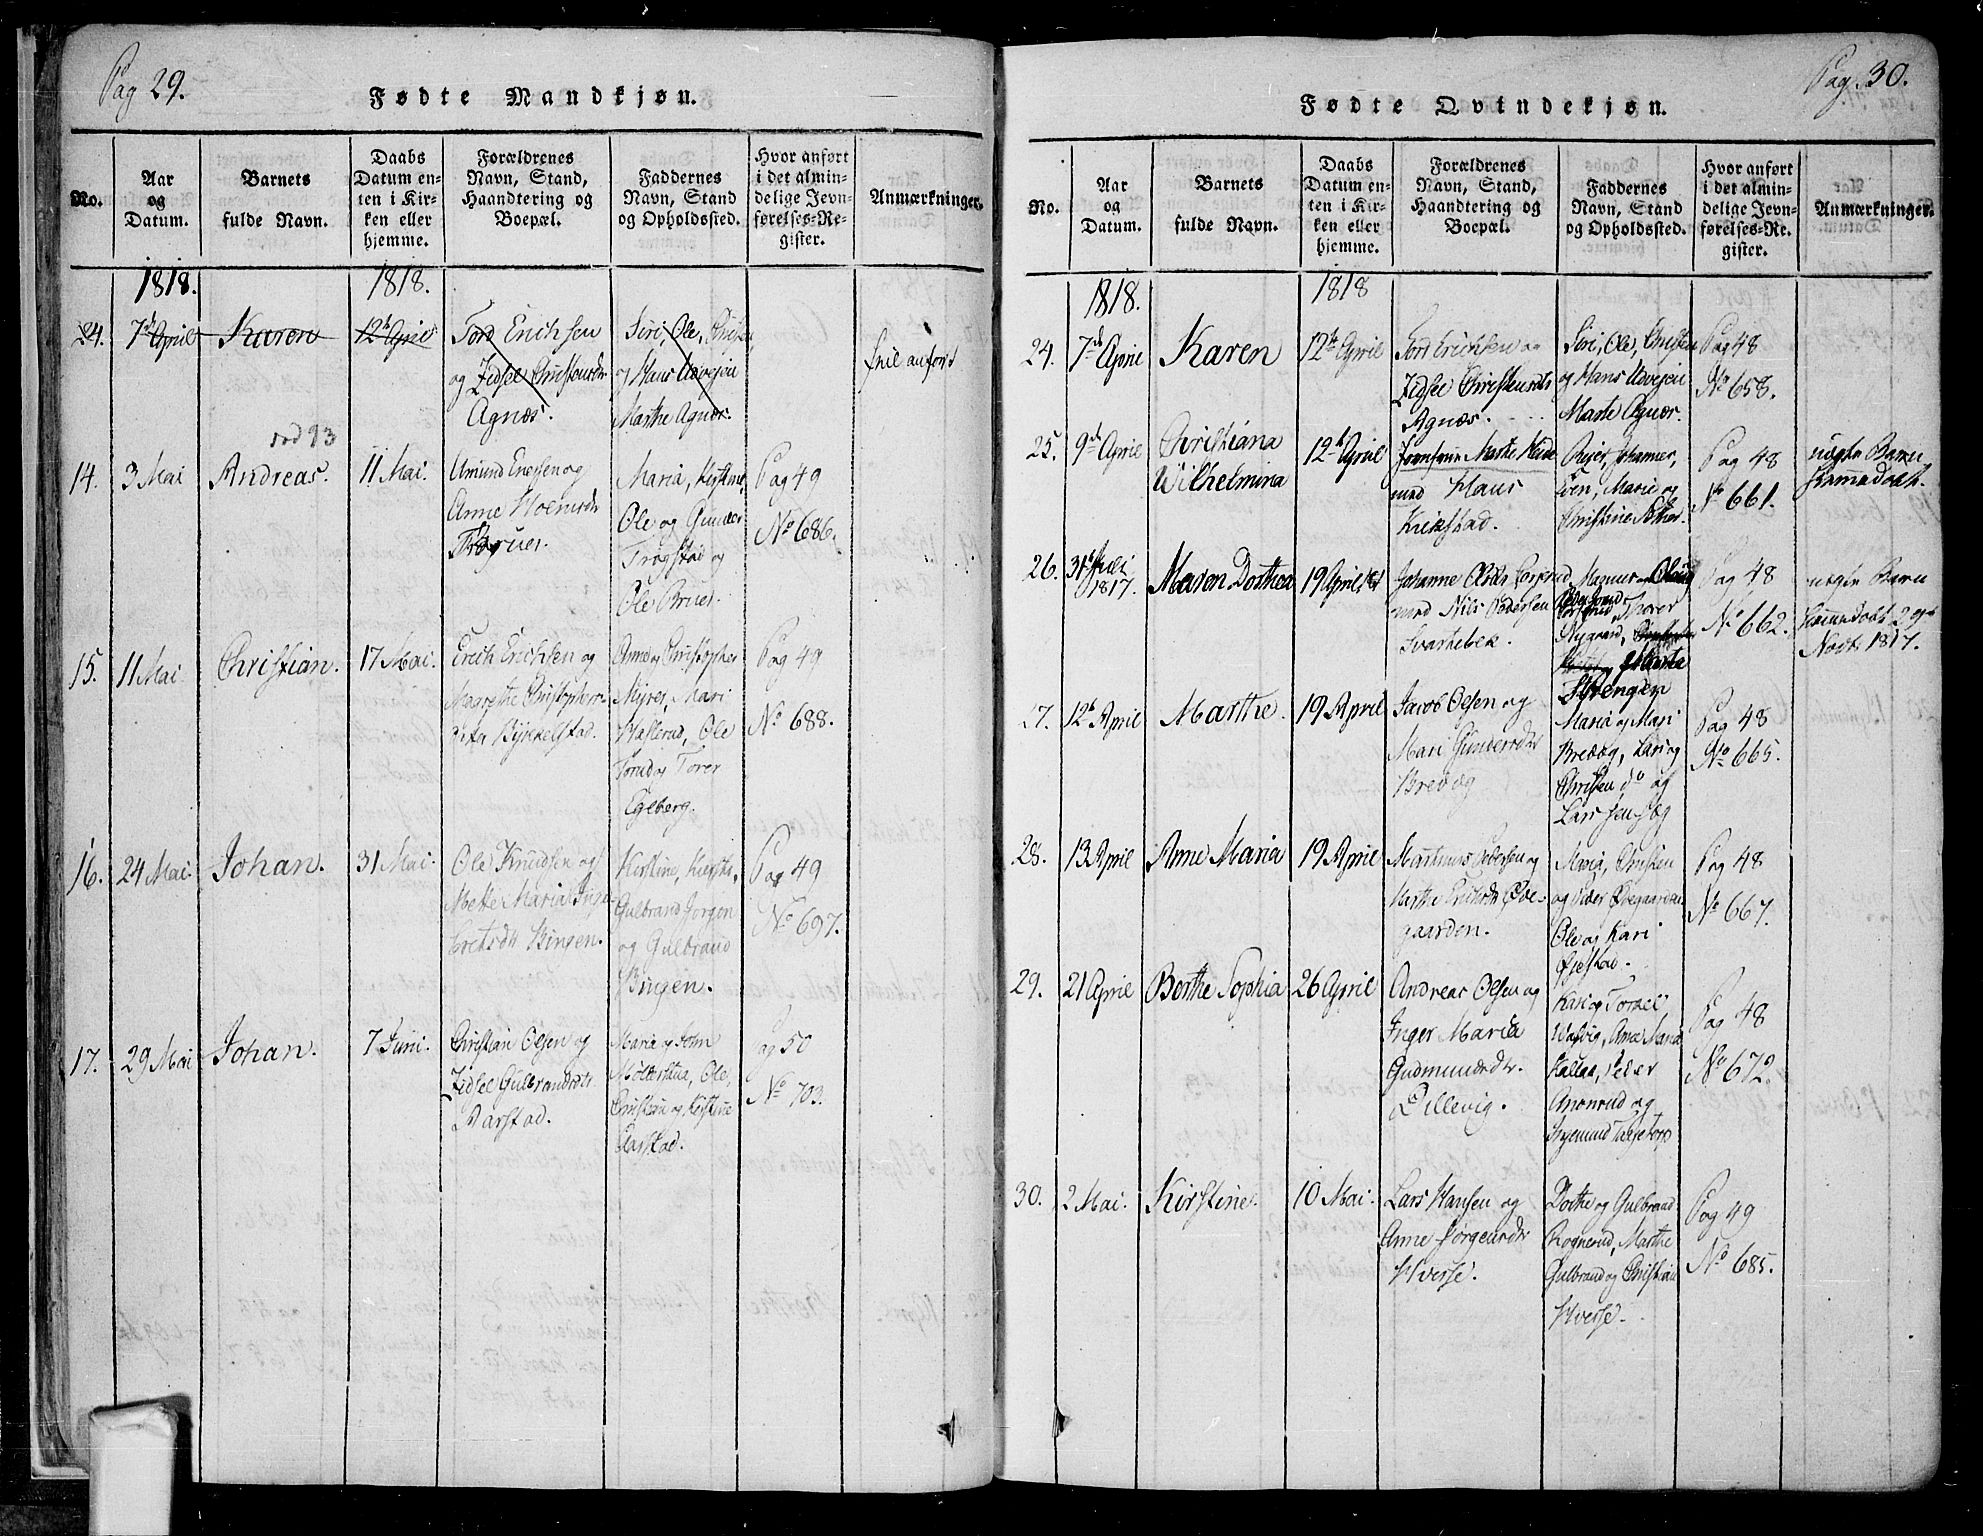 Pag 29.
Fødte Mandkjøn.
No.
Aar
og
Datum.
Barnets
fulde Navn.
Daabs
Datum en-
ten i Kir-
ken eller
hjemme.
Forældrenes
Navn, Stand,
Haandtering og
Boepæl.
Faddernes
Navn, Stand
og Opholdssted.
Hvor anført
i det almin-
delige Jevn-
førelses-Re-
gister.
Anmærkninger.
1818.
1818.
24.
7de April
Karen
12te April
Tord Erichsen
og Zidsel Christensdr
Agnæs.
Siri, Ole, Christen
og Hans Udvejen
Marthe Agnæs.
feil anført
14.
3 Mai
Andreas.
11 Mai.
Amund Enersen og
Anne
Bruer.
Maria, Kirstine,
Ole og Gunder
Trogstad og
Ole Bruer.
Pag 49
No 686.
15.
11 Mai
Christian.
17 Mai.
Erich Erichsen og
Magrethe Christophers-
Bykkelstad.
Anne og Christopher
Myrer, Mari
Haslerud, Ole
Torud og Torer
Egeberg.
Pag 49
No 688.
16.
24 Mai.
Johan.
31 Mai.
Ole Knudsen og
Mette Maria Inge-
bretsdr Bingen.
Kirstine,
Gulbrand Jørgen
og Gulbrand
Bingen.
Pag 49
No 697.
17.
29 Mai
Johan.
7 Juni.
Christian Olsen og
Zidsel Gulbrandsdr
Aarstad.
Maria og John
Møllerstua, Ole,
Christian og Kirstine
Aarstad.
Pag 50
No 703.
Pag. 30.
Fødte Qvindekjøn.
No.
Aar
og
Datum.
Barnets
fulde Navn.
Daabs
Datum en-
ten i Kir-
ken eller
hjemme.
Forældrenes
Navn, Stand,
Haandtering og
Boepæl.
Faddernes
Navn, Stand
og Opholdssted.
Hvor anført
i det almin-
delige Jevn-
førelses-Re-
gister.
Anmærkninger.
1818.
1818
24.
7de April
Karen
12te April
Tord Erichsen og
Zidsel Christensdr
Agnæs.
Siri, Ole, Christen
og Hans Udvejen
Marte Agnæs.
Pag 48
No 658.
25.
9de April
Christiana
Wilhelmina
12te April
Marthe
med Hans
Kirkstad.
Rejer, Johannes,
Even, Marie og
Christine
Pag 48
No 661.
uægte Barn
hjemmedøbt.
26.
31te Juli
1817.
Maren Dorthea
19 April
Johanne
med Nils Pedersen
Svartebek.
Thorer
Nygaard,
Marta
Pag 48
No 662.
uægte Barn
hjemmedøbt 2
Novbr 1817.
27.
12te April
Marthe.
19 April
Jacob Olsen og
Mari Gundersdr
Bredag
Maria og Mari
Bredag, Lars og
Christen do og
Lars
Pag 48
No 665.
28.
13 April
Anne Maria
19 April
Martinus Pedersen og
Marthe Erichsdr Øde-
gaarden.
Maria, Christen
og Peder Ødegaarden
Ole og Kari
Pag 48
No 667.
29.
21 April
Berthe Sophia
26 April
Andreas Olsen og
Inger Maria
Gudmundsdr.
Lillevig.
Kari og Torkel
Anne Maria
Kallaa, Peder
Anonrud og
Pag 48
No 672.
30.
2 Mai.
Kirstine.
10 Mai.
Lars Hansen og
Anne Jørgensdr
Hverse.
Dorthe og Gulbrand
Rognerud, Marthe
Gulbrand og Christian
Hverse.
Pag 49
No 685.